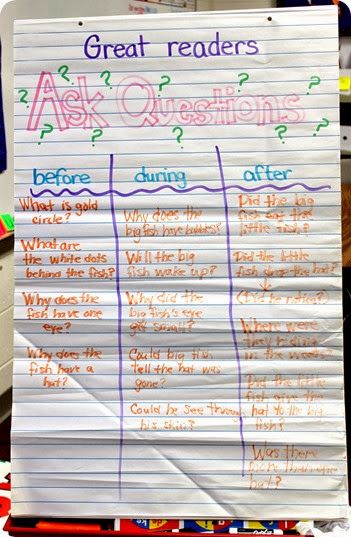 Great readers
Ask Questions
before
during
after
What is gold
circle?
What are
the white dots
behind the fish?
Why does the
fish have one
eye?
Why does the
fish have a
hat?
Why does the
big fish have bubbles?
Will the big
fish wake up?
Why did the
big fish's eye
get small?
Could big fish
tell the hat was
gone?
Could he see through
his skin?
Did the big
fish eat the
little fish?
Did the little
fish drop the hat?
(Did he notice?)
Where were
they hiding
in the weeds?
Did the little
fish give the
hat to the big
fish?
Was there
more than one
hat?